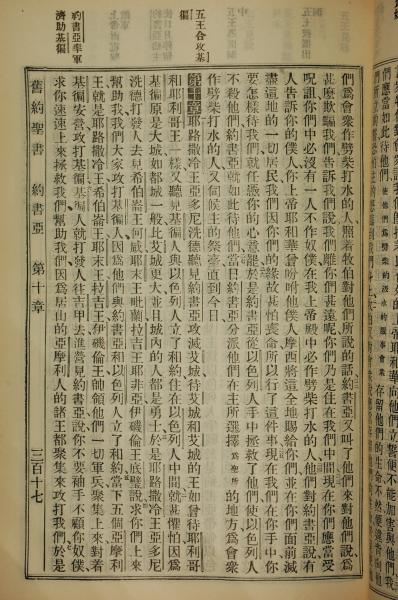 們應當如此待他們
存留他們的生命不然便違背向他
們爲會衆作劈柴打水的人照着牧伯對他們所說的話約書亞又叫了他們來對他們說爲
甚麼欺騙我們告訴我們說我們離你們甚遠呢你們乃是住在我們中間現在你們應當受
呪詛你們中必沒有一人不作奴僕在我上帝殿中必作劈柴打水的人他們對約書亞說有
人告訴你的僕人你上帝耶和華曾吩咐他僕人摩西將這全地賜給你們並在你們面前滅
盡這地的一切居民我們因你們的緣故甚怕喪命所以行了這件事現在我們在你手中你
要怎樣待我們就任憑你的心意罷於是約書亞從以色列人手中拯救了他們使以色列人
不殺他們約書亞就如此待他們當日約書亞分派他們在主所選擇爲聖所的地方爲會衆
作劈柴打水的人又伺候主的祭臺直到今日
五王合攻基
徧
第十章耶路撒冷王亞多尼洗德聽見約書亞攻滅艾城待艾城和艾城的王如曾待耶利哥
和耶利哥王一樣又聽見基徧人與以色列人立了和約住在以色列人中間就甚懼怕因爲
基徧原是大城如都城一般比艾城更大並且城內的人都是勇士於是耶路撒冷王亞多尼
洗德打發人去見希伯崙王何咸耶末王毗蘭拉吉王耶非亞伊磯倫王底璧說求你們上來
幫助我我們大家攻打基徧人因爲他們與約書亞和以色列人立了和約當下五個亞摩利
王就是耶路撒冷王希伯崙王耶末王拉吉王伊磯倫王帥領他們一切軍兵聚集上來對着
約書亞率軍
濟助基徧
基徧安營攻打基徧基徧人就打發人往吉甲去進營見約書亞說你不要袖手不顧你奴僕
求你速速上來拯救我們幫助我們因爲居山的亞摩利人的諸王都聚集來攻打我們於是
舊約聖書 約書亞 第十章 三百十七